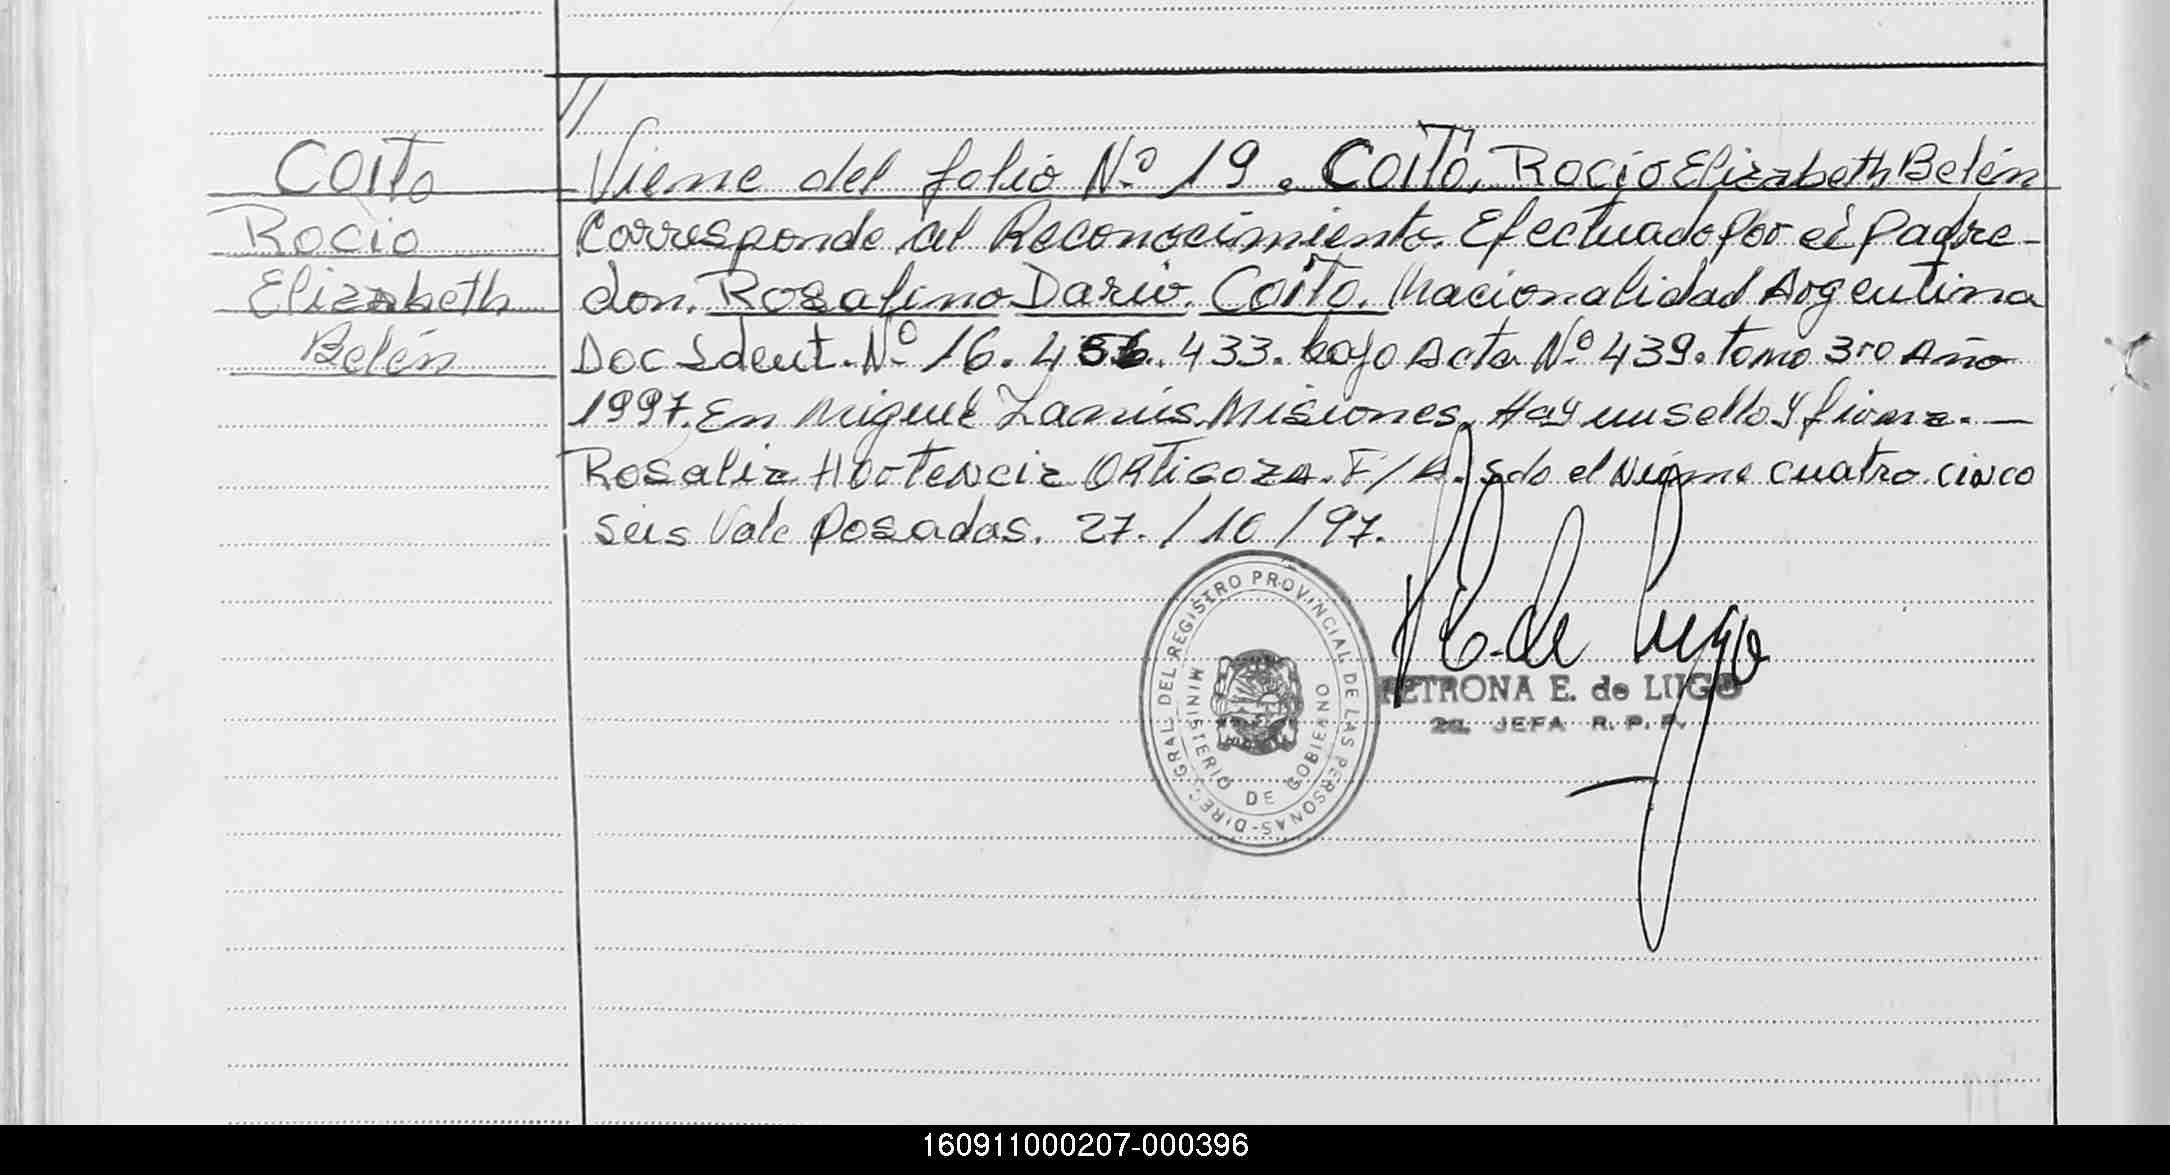 //
Coito
Rocio
Elizabeth
Belén
Viene del folio Nº 19. Coito, Rocio Elizabeth Belén
Corresponde al Reconocimiento. Efectuado por el Padre -
don. Rosalino Dario. Coito. Nacionalidad Argentina
Doc Ident. Nº 16.456.433. bajo Acta Nº 439. tomo 3ro Año
1997. En Miguel Lanús. Misiones. Hay un sello y firma. —
Rosalia Hortencia Ortigoza. F/A. Sdo el cuatro. cinco
seis Vale Posadas. 27./10/97.
P E. de Lugo
PETRONA E. de LUGO
2a. JEFA R. P. P.
DIREC. GRAL. DEL REGISTRO PROVINCIAL DE LAS PERSONAS-
MINISTERIO DE GOBIERNO
160911000207-000396